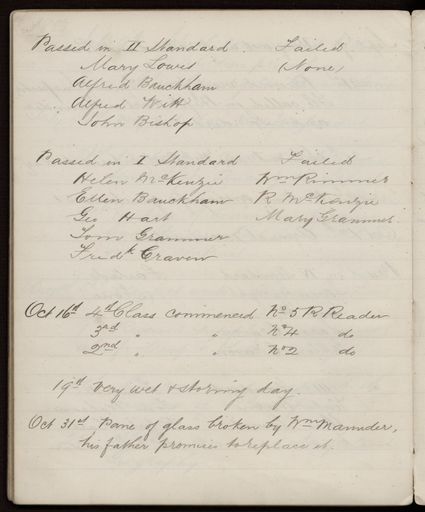 Passed in II Standard Failed
Mary Lowes (None)
Alfred Bauckham
Alfred Wilk
John Bishop
Passed in I Standard Failed
Helen McKenzie Wm Rimmer
Ellen Bauckham R McKenzie
Geo Hart Mary Grammer
Tom Grammer
Fredk Craven
Oct 16th 4th Class commenced No 5 R Reader
3rd " " No 4 do
2nd " " No 2 do
19th Very wet & stormy day.
Oct 31st Pane of glass broken by Wm Maunder,
his father promises to replace it.